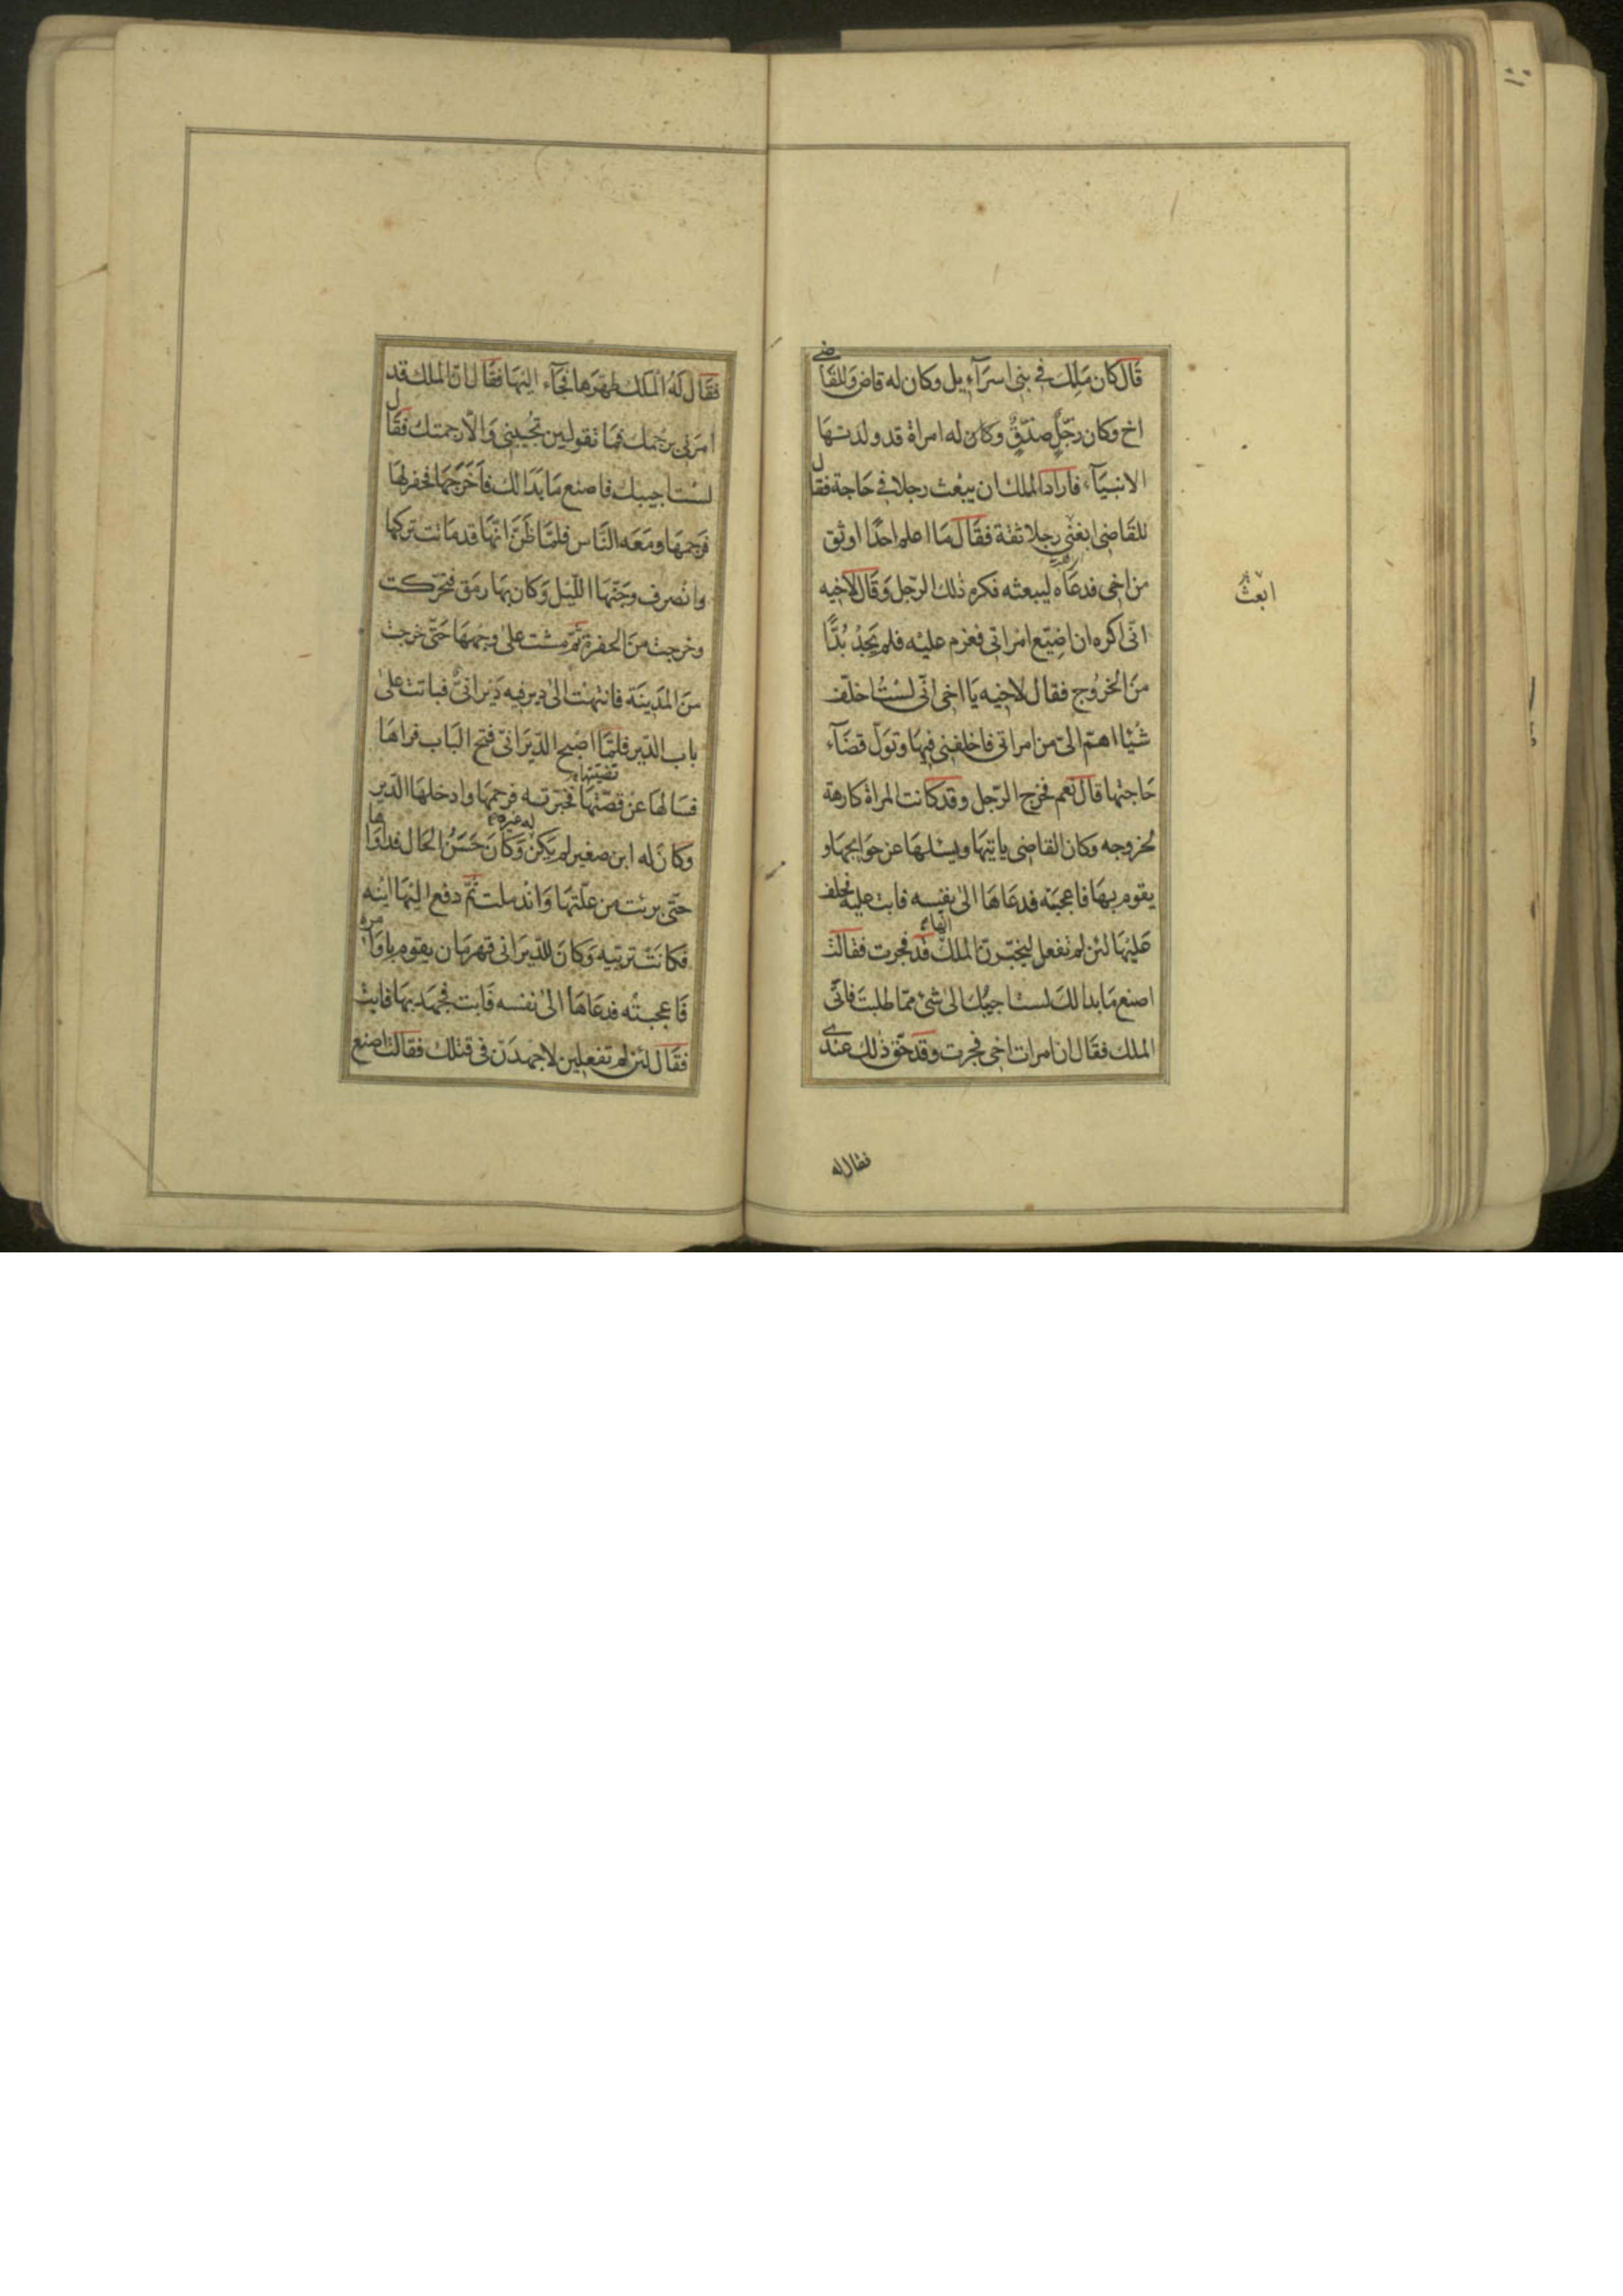 قَال كان مَلِك في بنى اسرَآءيل وكان له قاض وَللقَاضى
اخ وكان رَجُلٌ صِدْقٌ وكان له امراة قد ولدتها
الانبيَآء فاراد الملك ان يبْعث رجلا في حَاجة فقال
للقَاضى ابغنى رجلا ثقة فقَال مَا اعلم احدًا اوثق
من اخى فدعَاه ليبعثه فكره ذٰلك الرّجل وَقَال لاخيه
ابعث
انّى اكره ان اضِيّع امْراتى فعزم عليْه فلم يَجِدْ بُدًّا
منَ الخرُوج فقال لاخِيه يَا اخى انّى لسْتُ اخلّف
شيْا اهمّ الىّ من امراتى فاخلفنى فيهَا وتولّ قضَآء
حَاجتها قال نَعم فخرج الرّجل وقد كَانت المراة كارهة
لخروجه وكان القاضى ياتيهَا ويسْلهَا عن حوَايجهَا و
يقوم بهَا فاعجبَته فدعَاهَا الىٰ نفسِه فابت عليْه فحلف
عَليْهَا لئن لم تفعل ليخبّرنّ الملك انّها قد فجرت فقالت
اصنع مَا بدا لكَ لست اجيبُك الىٰ شئ ممّا طلبتَ فاتى
الملك فقَال ان امرات اخى فجرت وقد حقّ ذٰلك عندى
فقال له
فقَال لَهُ الملك طهّرهَا فجَآء اليْهَا فقَال انّ الملك قد
امرَنى برجمك فمَا تقولين تجُيبنى وَالّا رجمتك فقَال
لسْت اجيبك فاصنع مَا بَدَا لك فاَخرَجَهَا فحفر لهَا
فرَجمهَا ومَعَه النَّاس فلمّا ظَنَّ انّهَا قد مَاتت تركهَا
وانْصرف وجَنّهَا اللّيْل وَكان بهَا رمق فتحرّكت
وخرجت منَ الحفرة ثمّ مشت علىٰ وجههَا حَتّى خرجت
منَ المَدينَة فانتهَت الىٰ دير فيه دَيْرَانىٌّ فباتت علىٰ
باب الدّير فلمّا اصْبح الدّيرَانى فتح البَاب فراهَا
فسَالهَا عنْ قصّتهَا فخبّرته فرحمهَا وادخلهَا الدّير
وكَانَ له ابن صغير لم يَكنْ له غيره وَكَانَ حَسَنُ الحَال فداوَاها
حتّى برئت من علّتهَا وَانْدملت ثمّ دفع اليْهَا ابْنه
فكانَتْ تربّيه وَكانَ للدّيرَانى قهرمَان يقوم باوَامره
فَاعجبتْه فدعَاهَا الىٰ نفسه فَابت فجهَد بهَا فابتْ
فقَال لئن لم تفعلين لاجهدَنّ فى قتلك فقالت اصْنع